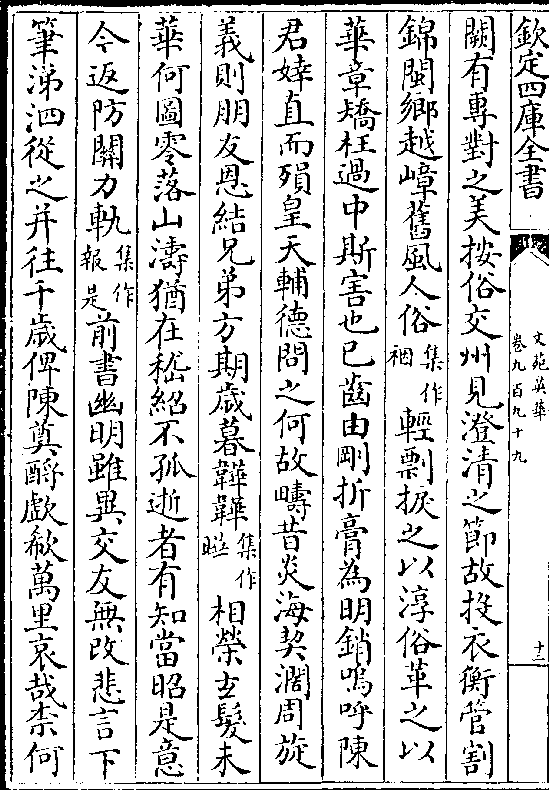 欽定四庫全書
文苑英華
卷九百九十九
十二
闕有專對之美按俗交州見澄清之節故投衣衡管割
錦閩鄉越嶂舊風人俗集作禂輕剽掖之以淳俗革之以
華章矯枉過中斯害也已齒由剛折膏為明銷嗚呼陳
君婞直而殞皇天輔德問之何故疇昔炎海契濶周旋
義則朋友恩結兄弟方期歲暮韡韡集作㬙相榮玄髮未
華何圖零落山濤猶在嵇紹不孤逝者有知當昭是意
今返防關力軌集作報是前書幽明雖異交友無改悲言下
筆涕泗從之并往千歲俾陳奠酹歔欷萬里哀哉柰何